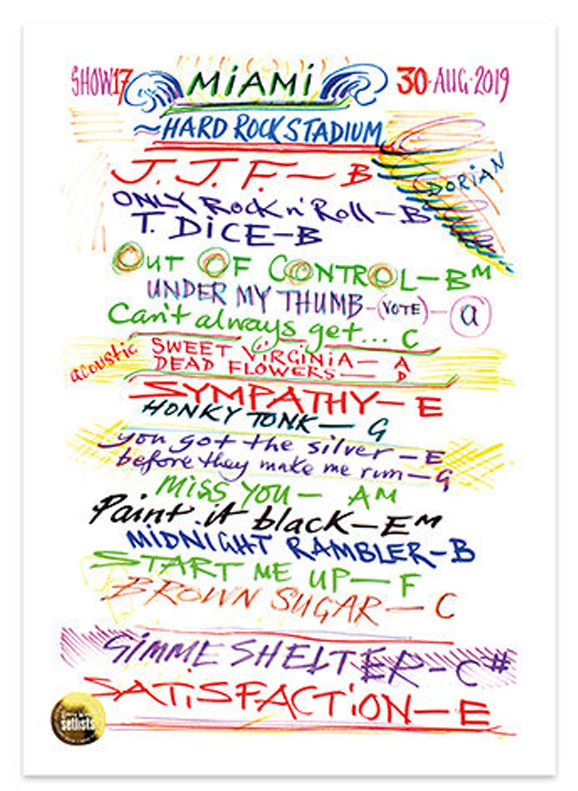 SHOW 17 MiAMi 30·AUG·2019
~HARD ROCK STADIUM
DORIAN
J. J. F. — B
ONLY Rock n' Roll — B
T. DiCE — B
Out OF CONTROL — BM
UNDER MY THUMB — (VOTE) — a
Can't always get... C
acoustic
SWEET ViRGiNiA — A
DEAD FLOWERS — D
SYMPATHY — E
HONKY TONK — G
you got the silver — E
before they make me run — G
MiSS YOU — AM
Paint it black — EM
MiDNiGHT RAMBLER — B
START ME UP — F
BROWN SUGAR — C
GIMME SHELTER — C#
SATiSFACTiON — E
setlists